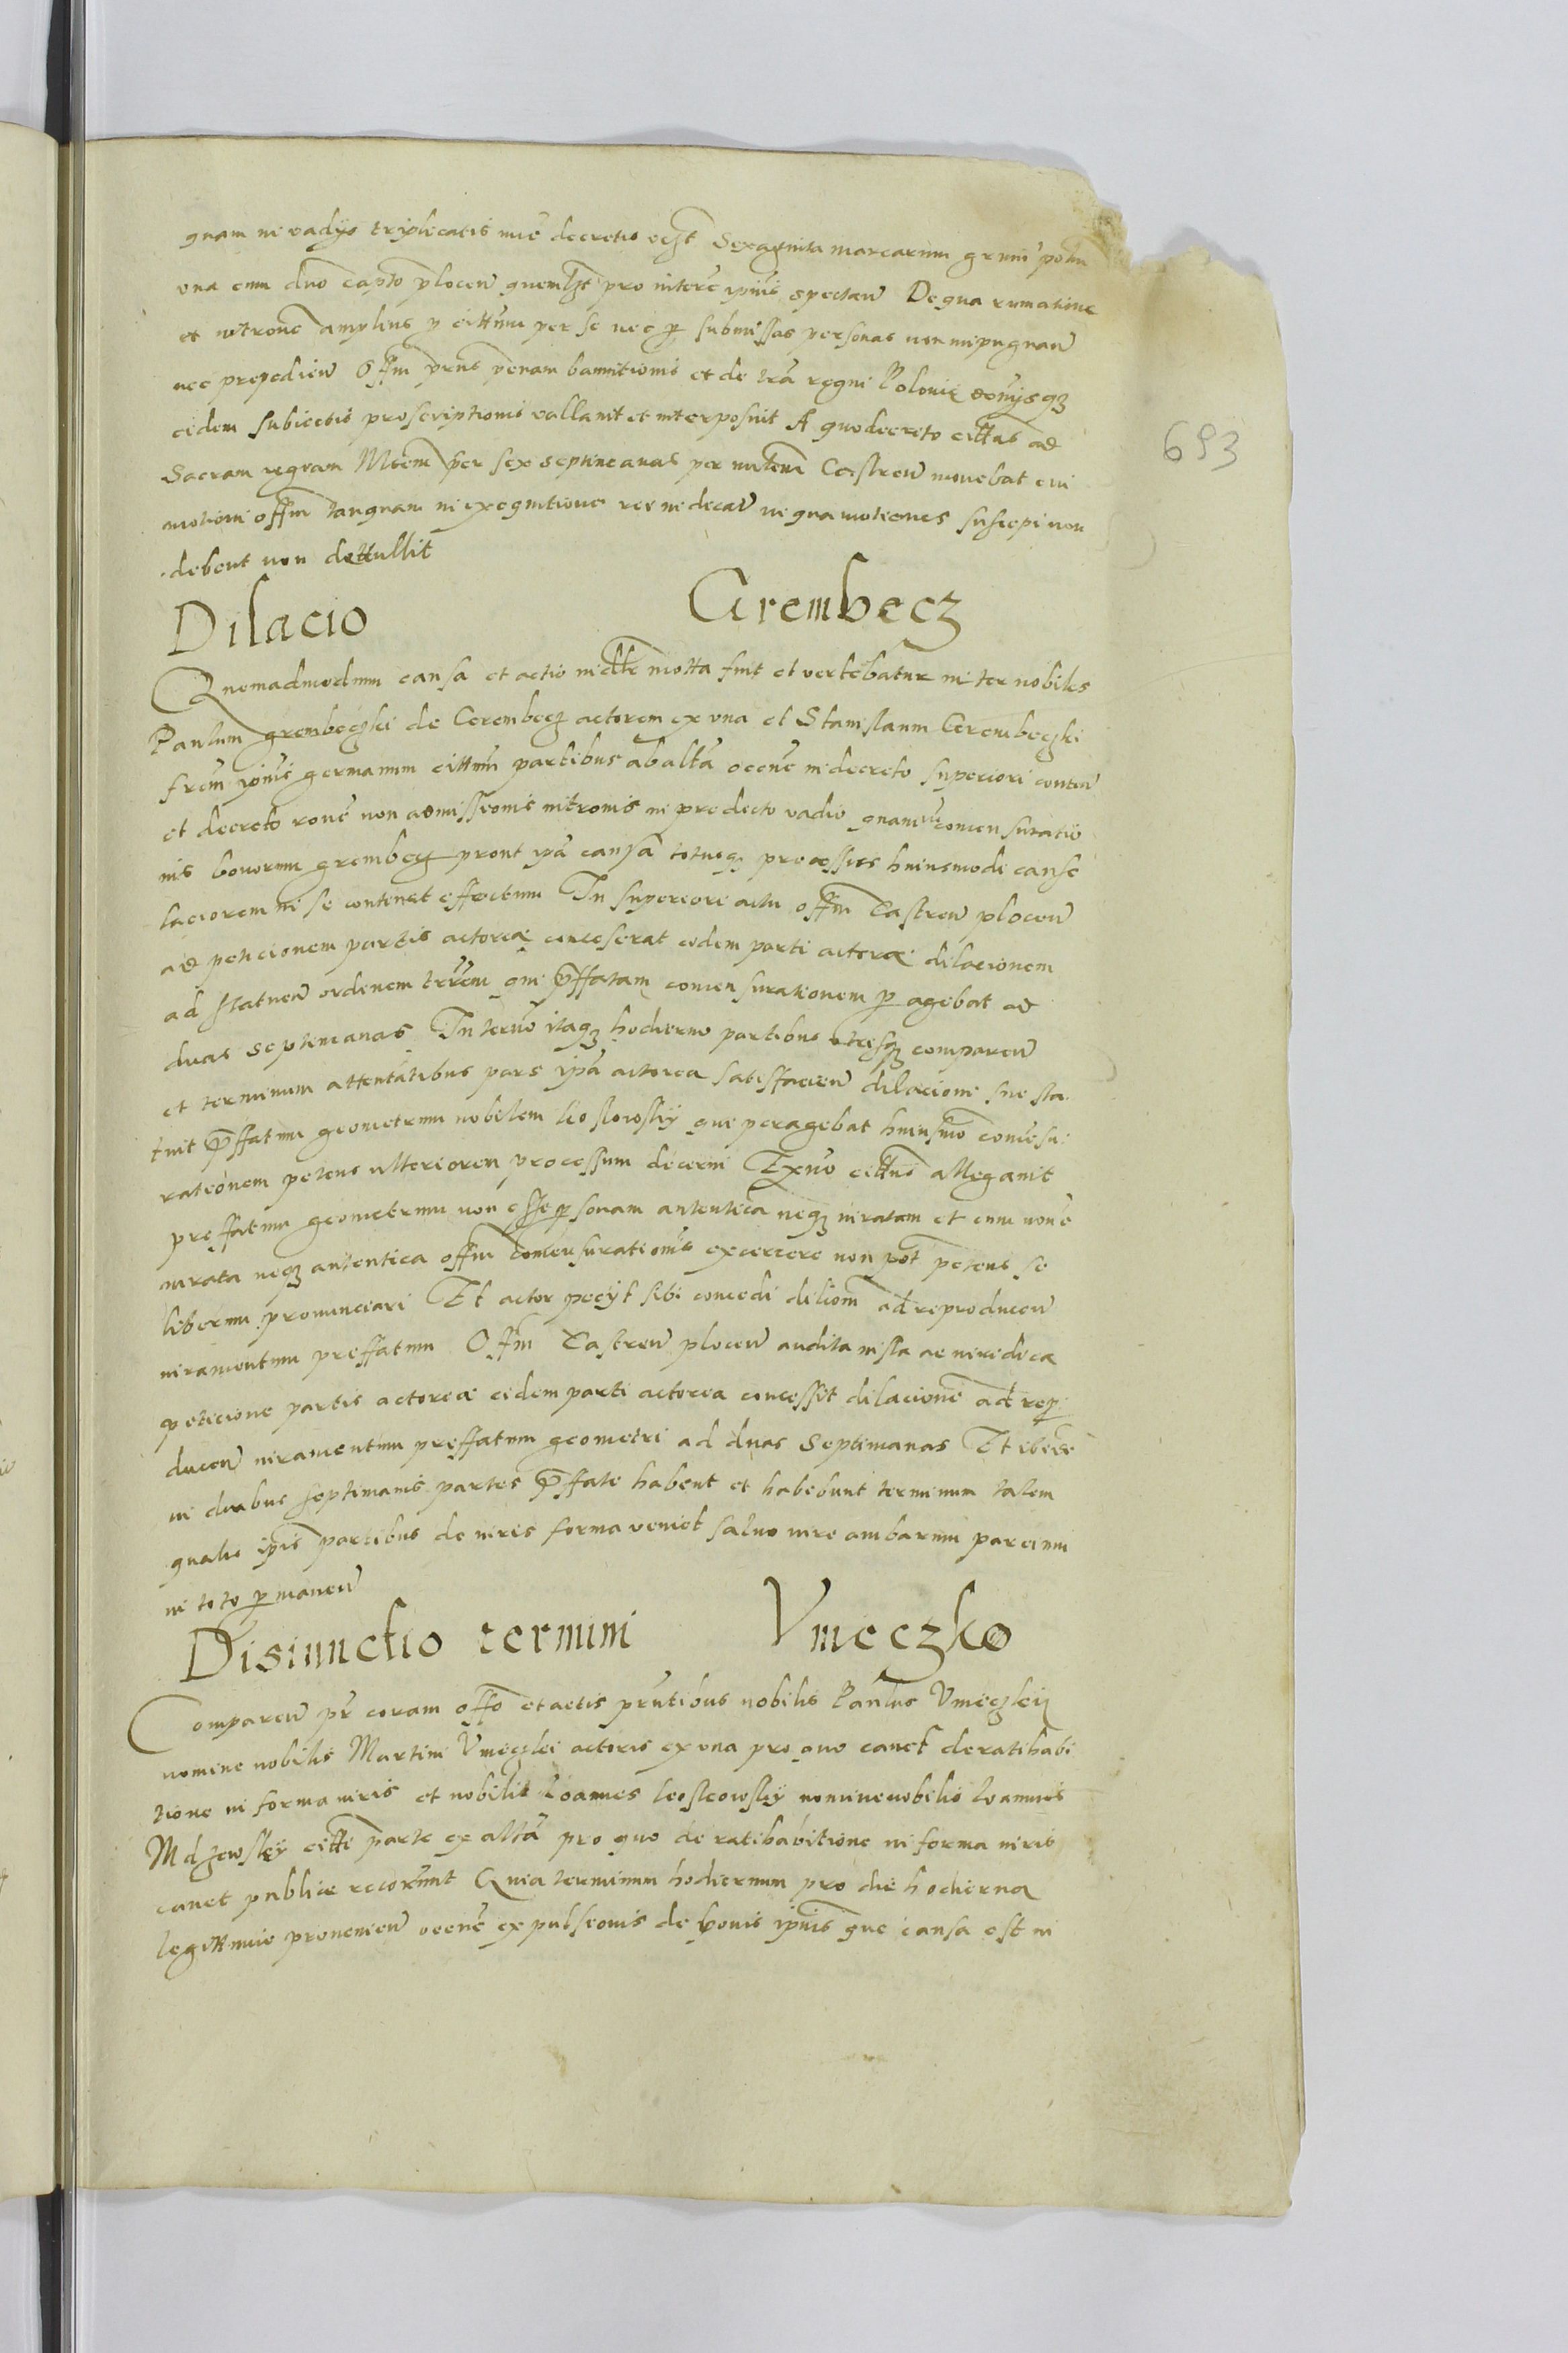 quam in vadys triplicatis in me decretis vczt Sexaginta marcarum grum polon
una cum duo capto plocen quemlzt pro interce ipius spectan De qua rumatione
et introne amplius p cittum per se nec p submissas personas non impugnan
nec prepedien Offm prns penam bannitionis et de tra regni Polonie domysqz
eidem subiectis proscriptionis vallavit et interposuit A quo decreto cittas ad
Sacram regiam Mtem per sex septimanas per Castren movebat cui
motioni offm tanquam in executione rei iudicat in qua motiones suscepi non
debent non dettullit
Dilacio Grembecz
Quemadmodum causa et actio motta fuit et vertebatur inter nobiles
Paulum grembeczki de Grembecz actorem ex una et Stanislaum Grembeczki
frem ipius germanum cittum partibus ab alta occne in decreto superiori conten
et decreto rone non admissionis intronis in predicto vadio comensuratio
nis bonorum grembecz prout ipa causa totusqz processus huiusmodi cause
laciorem in se continet effectum In superiori actu offm Castren plocen
ad peticionem partis actoree concesserat eidem parti actoree dilacionem
ad statuen ordinem terrem qui pffatam comensurationem p agebat ad
duas septimanas In termo itaqz hodierno partibus utrisqz comparen
et terminum attentatibus pars ipa actorea satisffacien dilacioni sue sta
tuit pffatum geometrum nobilem kostowsky qui peragebat huiusmo comesu
rationem petens ulteriorem processum decerni Exno cittus allegavit
preffatum geometrum non esse p sonam autentica neqz iuratam et cum non e
iurata neqz autentica offm comensurationis exercere non pot petens se
liberum pronunciari Et actor pecyt sibi concedi diliom ad reproducen
iuramentum preffatum Offm Castren plocen audita iusta ac iuridica
peticione partis actoree eidem parti actorea concessit dilacione ad rep
ducen iuramentum preffatum geometri ad duas Septimanas Et ibidem
in duabus septimanis partes pffate habent et habebunt terminum talem
qualis ipis partibus de iuris forma veniet salvo iure ambarum parcium
in toto p manen
Disiunctio termini Vmieczko
Comparen pr coram offo et actis prntibus nobilis Paulus Vmieczkij
nomine nobilis Martini Vmieczki actoris ex una pro quo cavet de ratihabi
tione in forma iuris et nobilis Ioannes kostowsky nomine nobilis Ioannis
Mdzewsky citti parte ex alta pro quo de ratihabitione in forma iuris
cavet publice recorunt Quia terminum hodiernum pro die hodierna
legittime provenien occne expulsionis de bonis ipius que causa est in
693